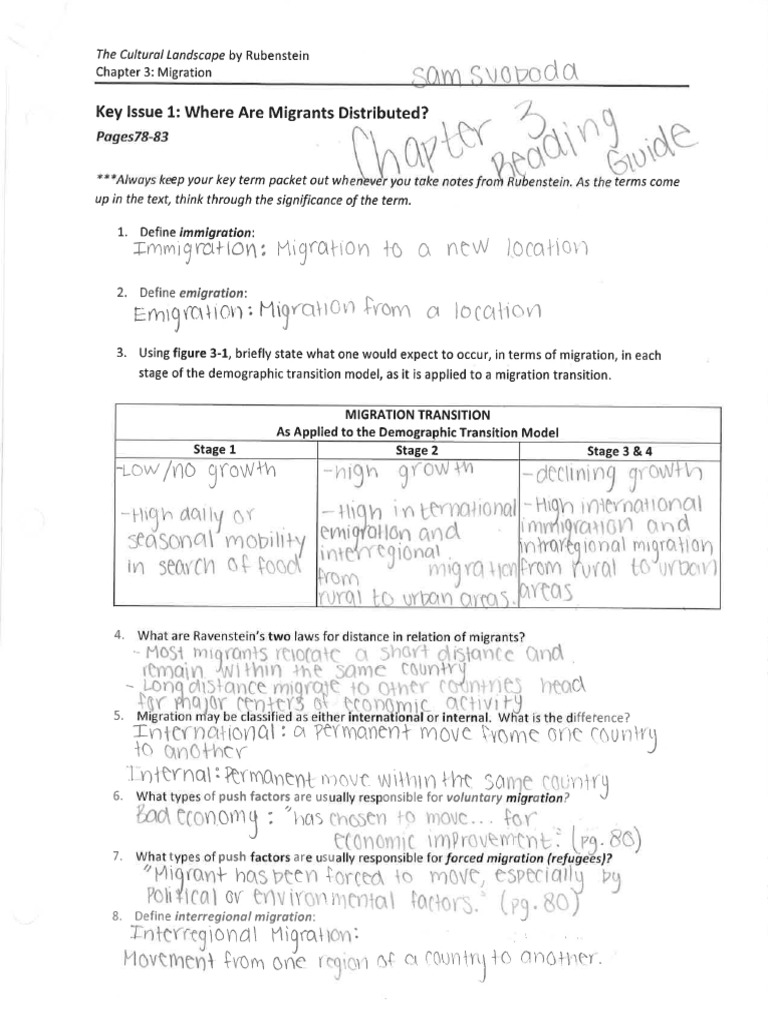 The Cultural Landscape by Rubenstein
Chapter 3: Migration
sam svoboda
Key Issue 1: Where Are Migrants Distributed?
Pages78-83
Chapter 3
Reading
Guide
***Always keep your key term packet out whenever you take notes from Rubenstein. As the terms come
up in the text, think through the significance of the term.
1. Define immigration:
Immigration: Migration to a new location
2. Define emigration:
Emigration: Migration from a location
3. Using figure 3-1, briefly state what one would expect to occur, in terms of migration, in each
stage of the demographic transition model, as it is applied to a migration transition.
MIGRATION TRANSITION
As Applied to the Demographic Transition Model
Stage 1
-Low/no growth
-High daily or
seasonal mobility
in search of food
Stage 2
-high growth
-High international
emigration and
interregional
migration
from
rural to urban areas.
Stage 3 & 4
-declining growth
-High international
immigration and
intraregional migration
from rural to urban
areas
4. What are Ravenstein's two laws for distance in relation of migrants?
- Most migrants relocate a short distance and
remain within the same country
- Long distance migrate to other countries head
for major centers of economic activity
5. Migration may be classified as either international or internal. What is the difference?
International: a permanent move frome one country
to another
Internal: Permanent move within the same country
6. What types of push factors are usually responsible for voluntary migration?
Bad economy: "has chosen to move... for
economic improvement." (pg. 80)
7. What types of push factors are usually responsible for forced migration (refugees)?
"Migrant has been forced to move, especially by
Political or environmental factors." (pg. 80)
8. Define interregional migration:
Interregional Migration:
Movement from one region of a country to another.